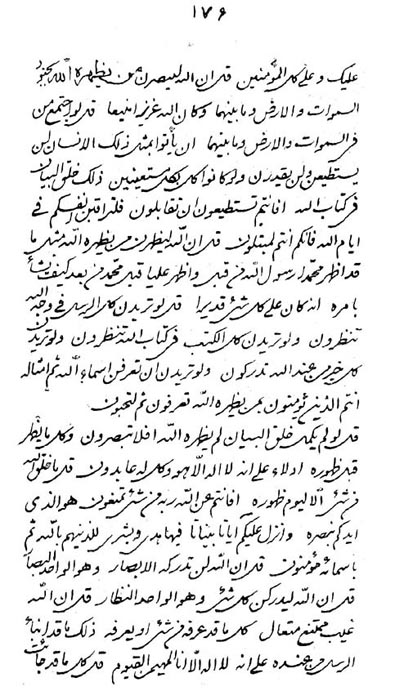 ١٧٦
عليك وعلى كل المؤمنين قل ان الله لينصرن من يظهره الله بجنود
السموات والارض وما بينهما وكان الله عزيزا منيعا قل لو اجتمع من
فى السموات والارض وما بينهما ان يأتوا بمثل ذلك الانسان لن
يستطيعن ولن يقدرن ولو كانوا كل بكل مستعينين ذلك خلق البيان
فى كتاب الله افانتم تستطيعون ان تقابلون فلتراقبن انفسكم فى
ايام الله فانكم انتم لمبتلون قل ان الله ليظهرن من يظهره الله مثل ما
قد اظهر محمدا رسول الله من قبل واظهر عليا قبل محمد من بعد كيف يشأ
بامره انه كان على كل شئ قديرا قل لو تريدن كل الرسل فى وجه الله
تنظرون ولو تريدن كل الكتب فى كتاب الله تنظرون ولو تريدن
كل خير من عند الله تدركون ولو تريدن ان تعرفن اسماء الله ثم امثاله
انتم الذين تؤمنون بمن يظهره الله تعرفون ثم لتحبون
قل لو لم يكن خلق البيان لم يظهره الله افلا تبصرون وكل ما يظهر
قبل ظهوره ادلاء على انه لا اله الا هو وكل له عابدون قل ما خلق الله
من شئ الا ليوم ظهوره افانتم عن الله ربه من شئ تمنعون هو الذى
ايدكم بنصره وانزل عليكم ايات بينات فيها هدى وبشرى للذينهم بالله ثم
باسمائه مؤمنون قل ان الله لن تدركه الابصار وهو الواحد البصار
قل ان الله ليدركن كل شئ وهو الواحد النظار قل ان الله
غيب ممتنع متعال كل ما قد عرفه من شئ او يعرفه ذلك ما قد انبأ
الرسل من عنده على انه لا اله الا انا المهيمن القيوم قل كل ما قد جائت